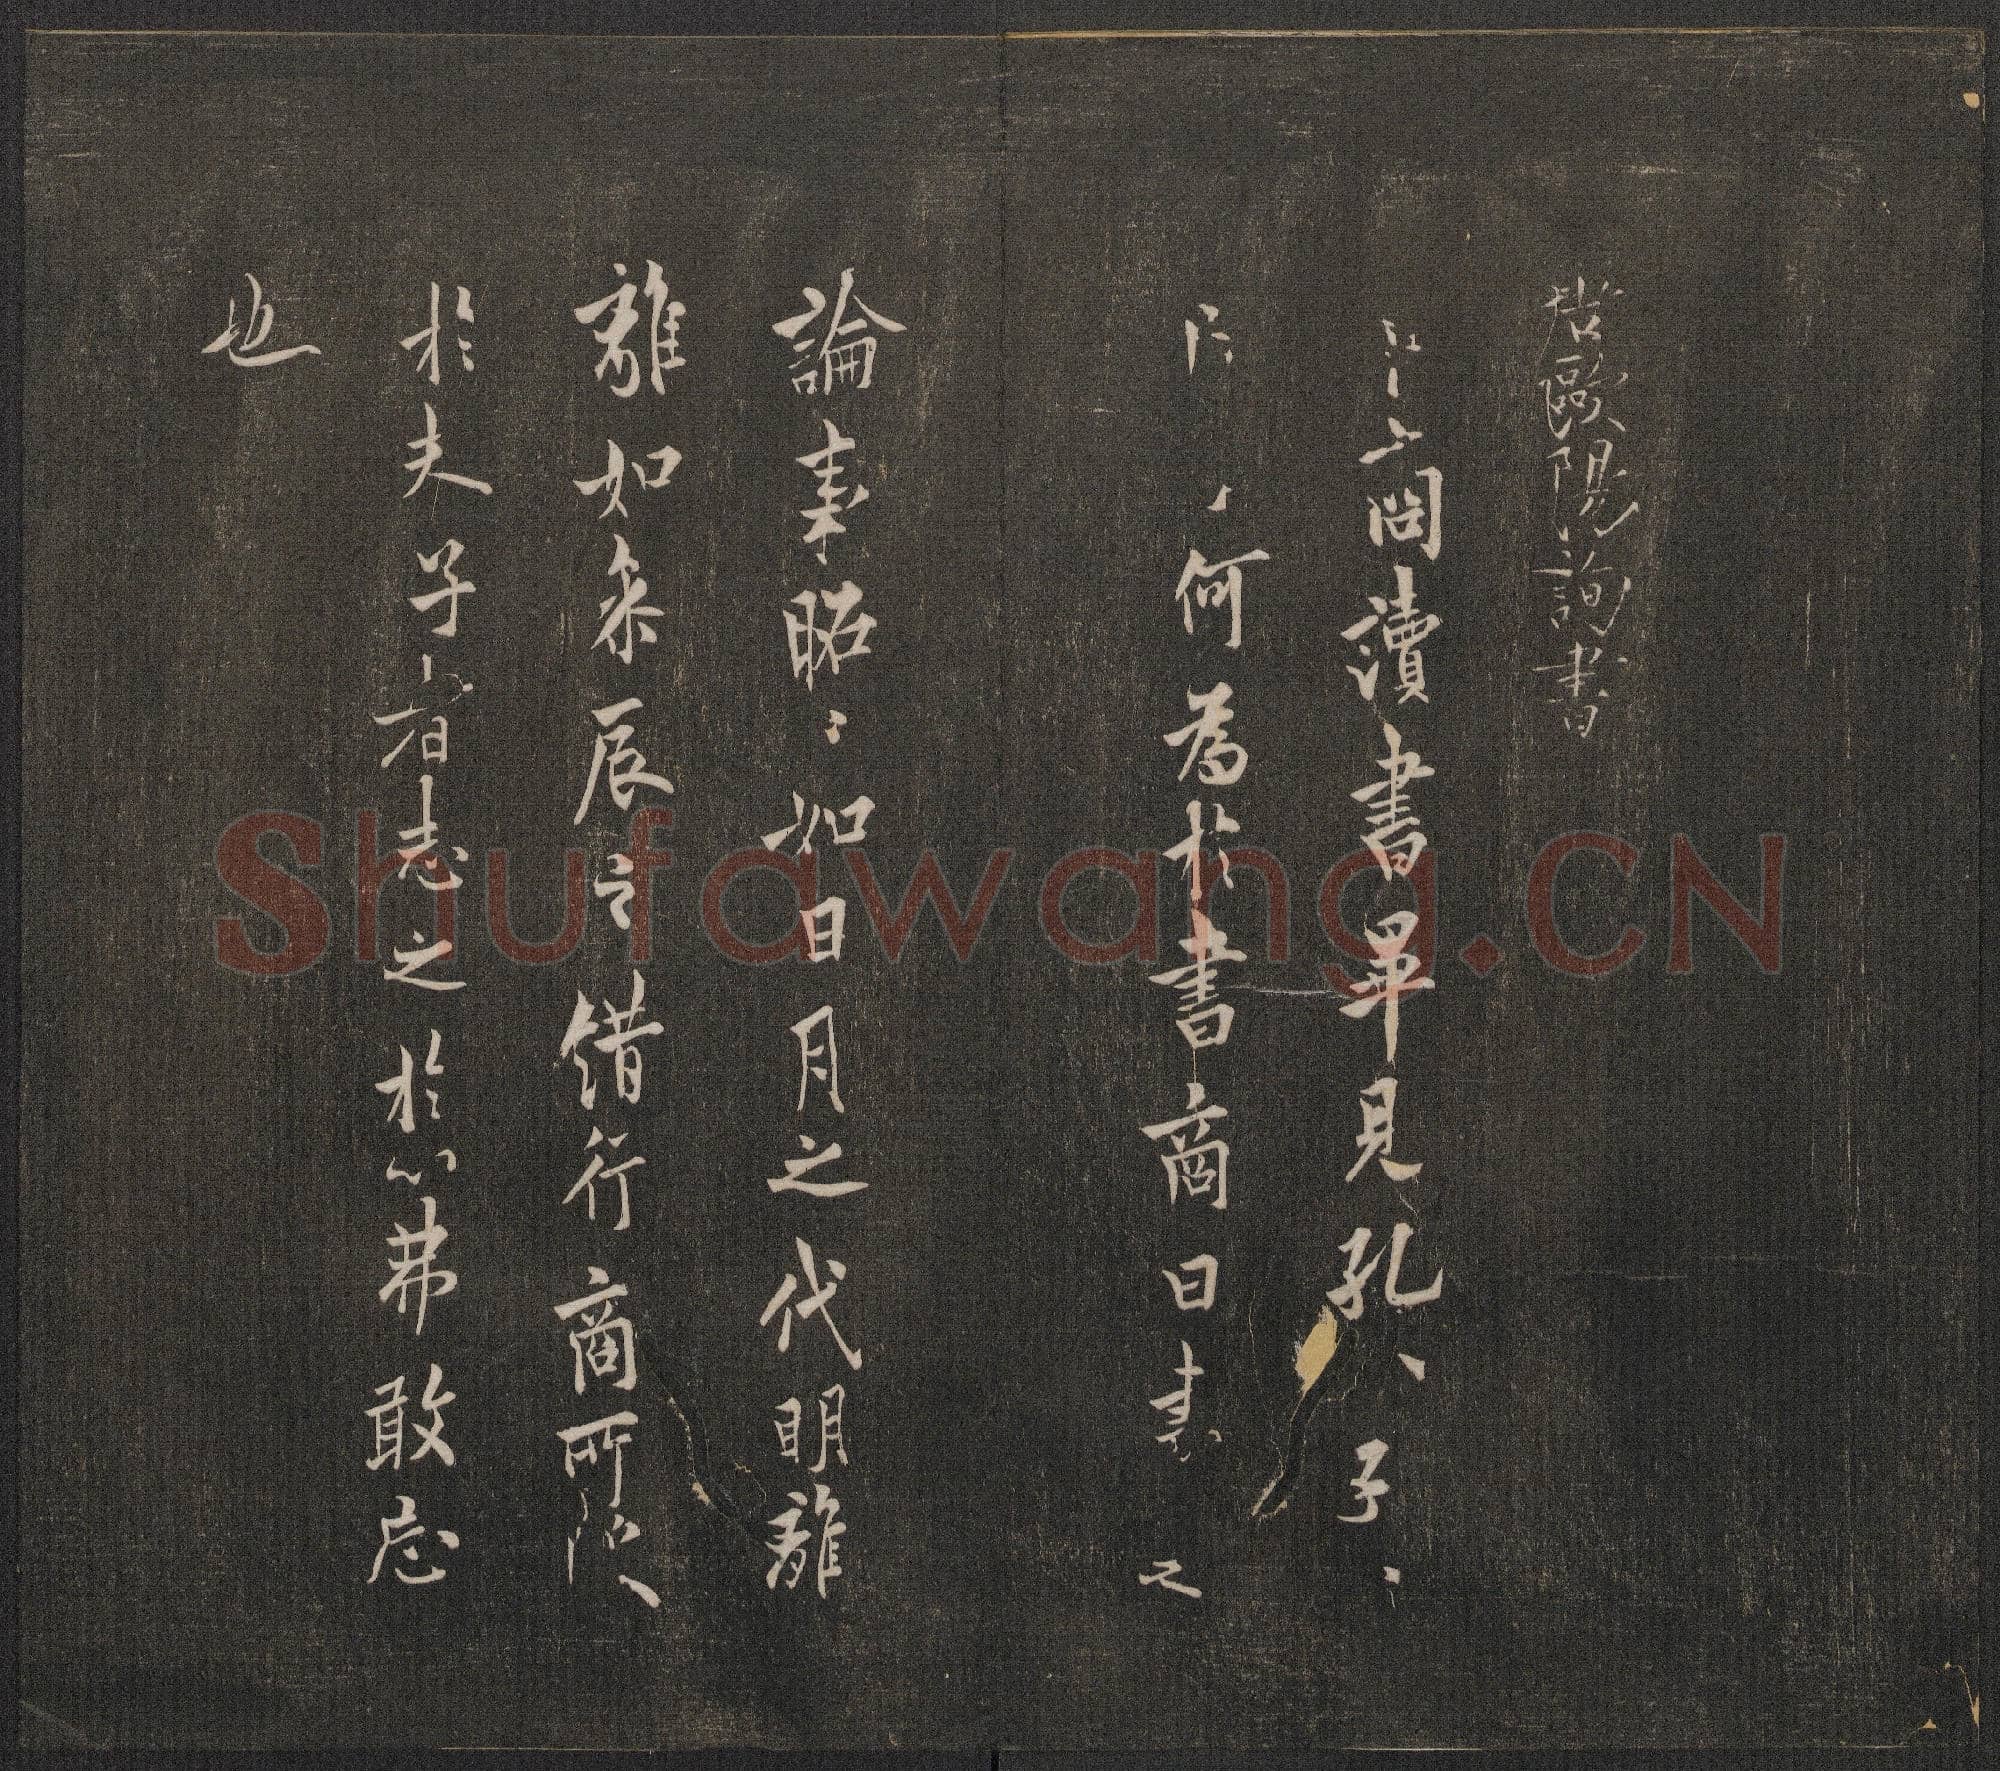 唐歐陽詢書
商讀書畢見孔子
何為於書商曰書之
論事昭〻如日月之代明離
離如參辰之錯行商所
於夫子者志之於心弗敢忘
也
Shufawang.CN